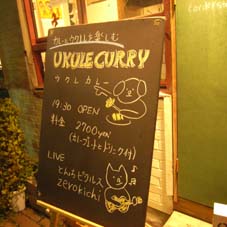 カレーとウクレレを楽しむ
UKULECURRY
ウクレカレー
19:30 OPEN
料金 2700yen
(カレープレートとドリンク付)
LIVE
とんちピクルス
zerokichi